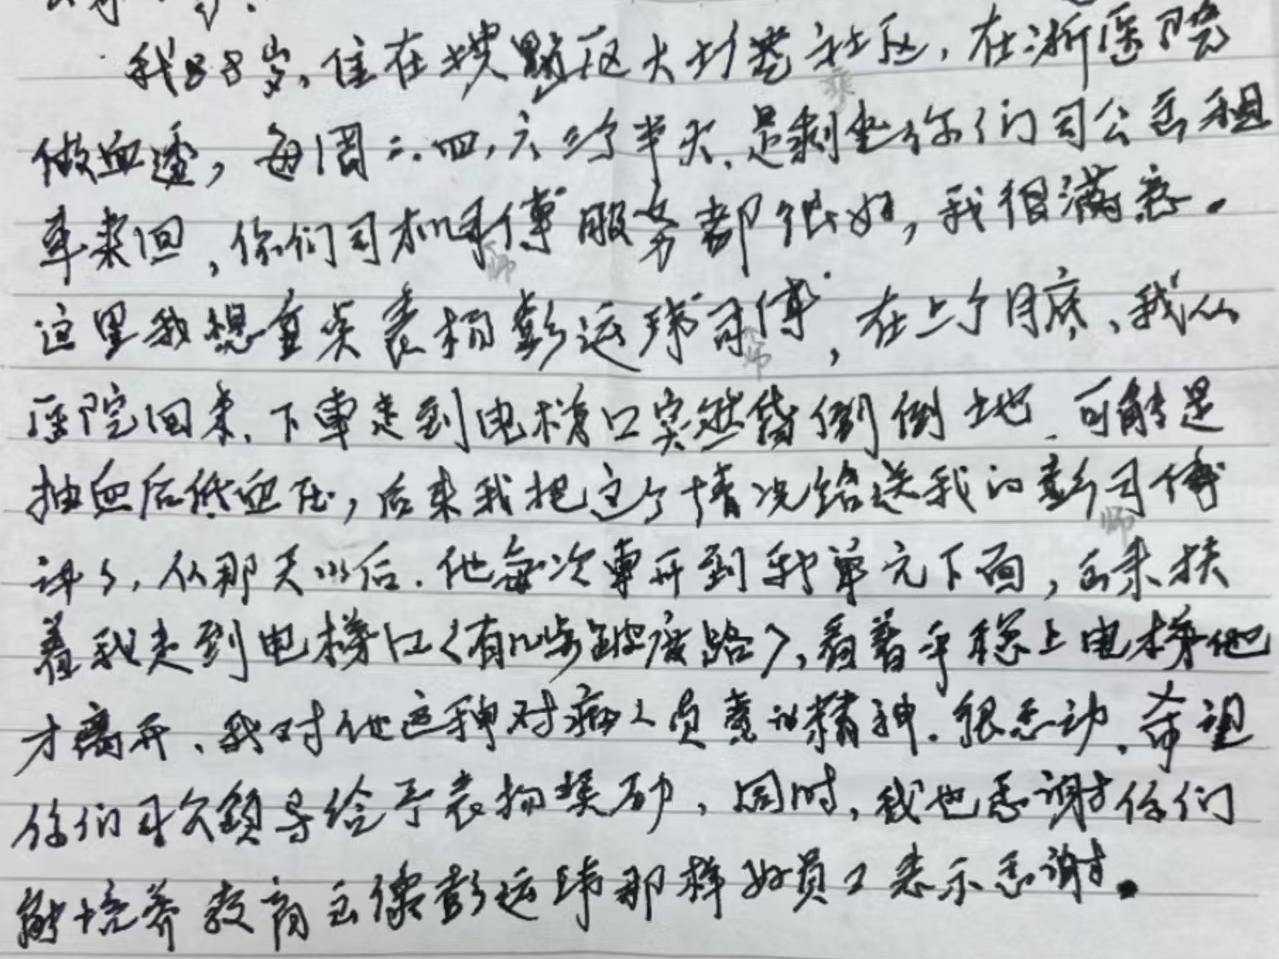 我88岁,住在拱墅区大塘巷社区,在浙医院
乘
做血透,每周二.四,六三个半天、是剩坐你们司公出租
车来回,你们司机师傅服务都很好,我很满意。
师
这里我想重点表扬彭运玮司傅,在上个月底、我从
师
医院回来、下車走到电梯口突然昏倒倒土地.可能是
抽血后低血压,后来我把这个情况给送我的彭司傅
师
讲了,从那天以后.他每次車开到我单元下面,出来扶
着我走到电梯口<有几步坡度路>,看着平稳上电梯他
才离开、我对他这种对病人负责的精神.很感动、希望
你们司公领导给予表扬奖励、同时,我也感谢你们
能培养教育出像彭运玮那样好员工表示感谢。